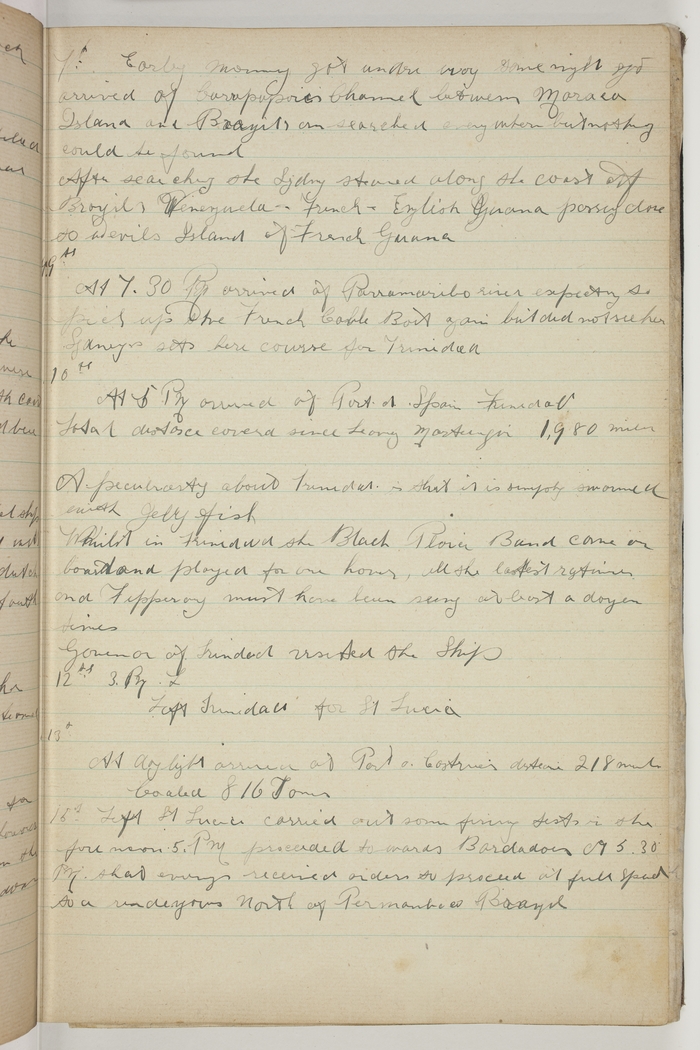 7th. Early morning got under way some night and
arrived of Carapapoies Channel between Moraca
Island and Brazils on searched everywhere but nothing
could be found
After searching the Sydney steamed along the coast off
Brazils Venezuela - French - English Guiana passing close
to Devils Island of French Guana
9th
At 7.30 PM arrived of Parramaribo river expecting to
pick up the French Cable Boat again but did not see her
Sydneys sets here course for Trinidad
10th
At 5 PM arrived of Port. d. Spain Trinidad
Total distace coverd since leaving 1,980 miles
A peculiarity about Trinidad. is that it is simply swormed
with Jelly fish
Whilst in Trinidad the Black Band came on
board and played for one hour, all the lastest ragtimes
and Tipperary must have been sung at least a dozen
times
Govenor of Trinidad visited the Ship
12th 3. PM.
Left Trinidad for St Lucia
13th
At daylight arrived at Port o. Castries distance 218 miles
Coaled 816 Tons
15th Left St Lucia carried out some firing tests in the
fore noon. 5. PM proceeded towards Bardados at 5.30
PM. that evenig received orders to proceed at full speed
to a rendezvous North of Permanbuco Brazil